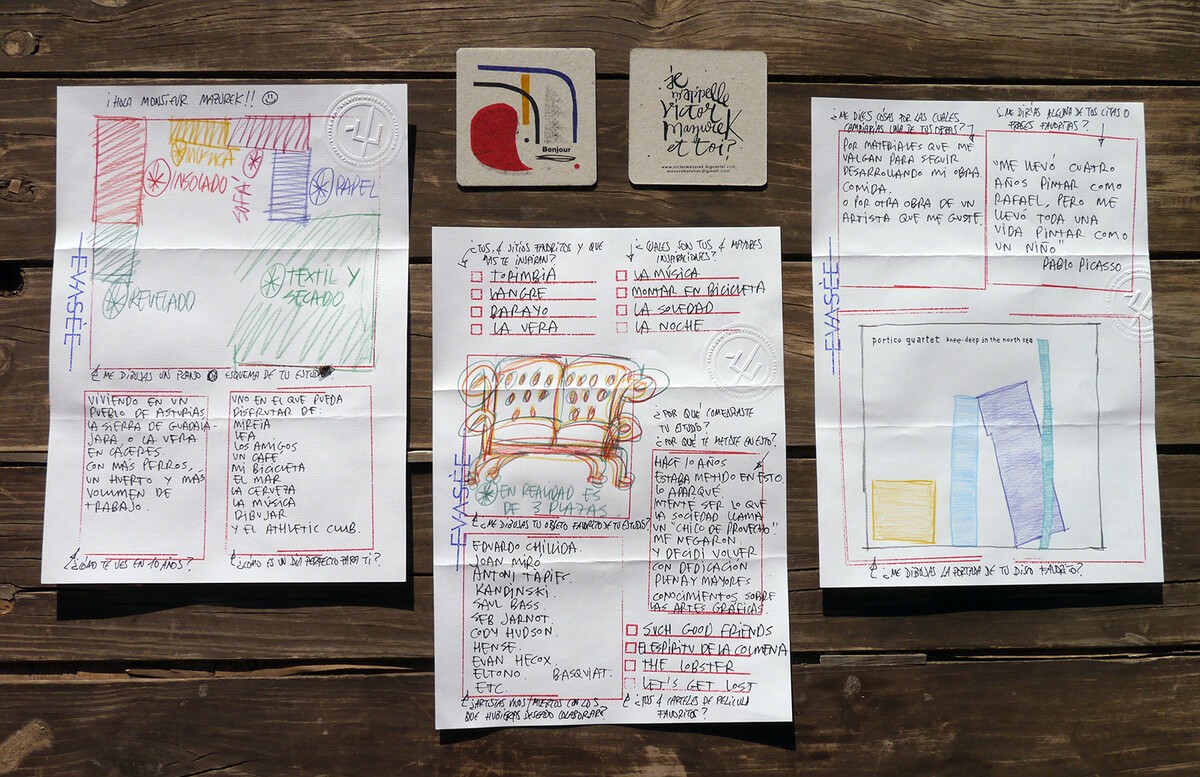 ¡HOLA MONSIEUR MAZUREK!!
MÚSICA
INSOLADO
SOFÁ
PAPEL
REVELADO
TEXTIL Y
SECADO
EVASÉE
¿ME DIBUJAS UN PLANO O ESQUEMA DE TU ESTUDIO?
VIVIENDO EN UN
PUEBLO DE ASTURIAS
LA SIERRA DE GUADALA-
JARA, O LA VERA
EN CÁCERES.
CON MÁS PERROS,
UN HUERTO Y MÁS
VOLUMEN DE
TRABAJO.
¿CÓMO TE VES EN 10 AÑOS?
UNO EN EL QUE PUEDA
DISFRUTAR DE:
MIREIA
LEA
LOS AMIGOS
UN CAFÉ
MI BICICLETA
EL MAR
LA CERVEZA
LA MÚSICA
DIBUJAR
Y EL ATHLETIC CLUB.
¿CÓMO ES UN DÍA PERFECTO PARA TI?
Bonjour
je
m'appelle
victor
mazurek
et toi?
www.victormazurek.bigcartel.com
mazurekatelier@gmail.com
¿TUS 4 SITIOS FAVORITOS Y QUE
MÁS TE INSPIRAN?
TORIMBIA
LANGRE
BARAYO
LA VERA
¿CUALES SON TUS 4 MAYORES
INSPIRACIONES?
LA MÚSICA
MONTAR EN BICICLETA
LA SOLEDAD
LA NOCHE
EN REALIDAD ES
DE 3 PLAZAS.
EVASÉE
¿ME DIBUJAS TU OBJETO FAVORITO DE TU ESTUDIO?
¿POR QUÉ COMENZASTE
TU ESTUDIO?
¿POR QUÉ TE METISTE EN ESTO?
HACE 10 AÑOS
ESTABA METIDO EN ESTO.
LO APARQUÉ.
INTENTÉ SER LO QUE
LA SOCIEDAD LLAMA
UN "CHICO DE PROVECHO"
ME NEGARON
Y DECIDÍ VOLVER
CON DEDICACIÓN
PLENA Y MAYORES
CONOCIMIENTOS SOBRE
LAS ARTES GRÁFICAS
EDUARDO CHILLIDA.
JOAN MIRÓ
ANTONI TAPIES.
KANDINSKI.
SAUL BASS.
SEB JARNOT.
CODY HUDSON.
HENSE.
EVAN HECOX.
ELTONO. BASQUIAT.
ETC.
¿ARTISTAS VIVOS/MUERTOS CON LOS
QUE HUBIERAS DESEADO COLABORAR?
SUCH GOOD FRIENDS
EL ESPÍRITU DE LA COLMENA
THE LOBSTER
LET'S GET LOST
¿TUS 4 CARTELES DE PELÍCULA
FAVORITOS?
¿ME DICES COSAS POR LAS CUALES
CAMBIARÍAS UNA DE TUS OBRAS?
POR MATERIALES QUE ME
VALGAN PARA SEGUIR
DESARROLLANDO MI OBRA.
COMIDA.
O POR OTRA OBRA DE UN
ARTISTA QUE ME GUSTE.
¿ME DIRÍAS ALGUNA DE TUS CITAS O
FRASES FAVORITAS?
"ME LLEVÓ CUATRO
AÑOS PINTAR COMO
RAFAEL, PERO ME
LLEVÓ TODA UNA
VIDA PINTAR COMO
UN NIÑO"
PABLO PICASSO
EVASÉE
portico quartet knee-deep in the north sea
¿ME DIBUJAS LA PORTADA DE TU DISCO FAVORITO?